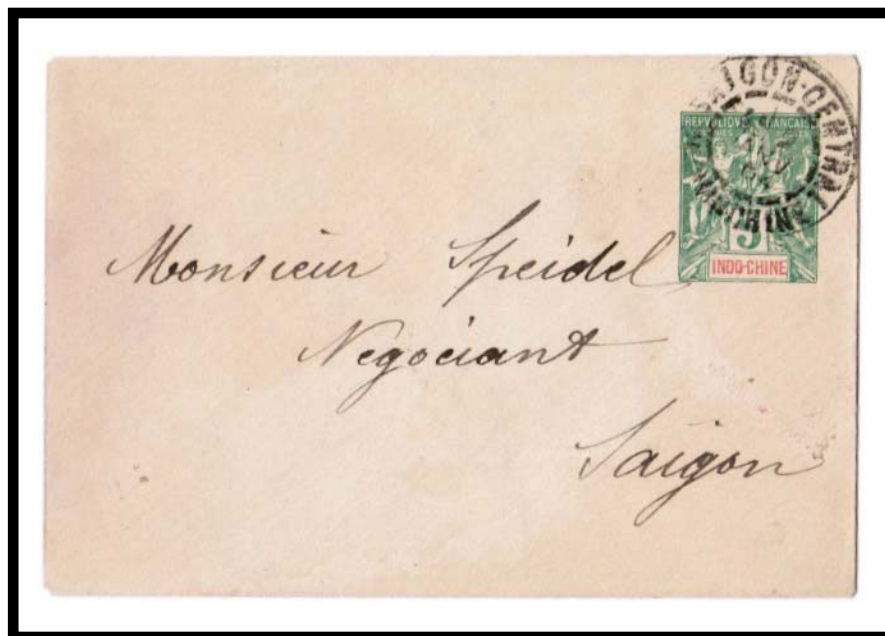 SAIGON-CENTRAL
REPVBLIQVE FRANÇAISE
5
INDO-CHINE
Monsieur Speidel
Negociant
Saigon